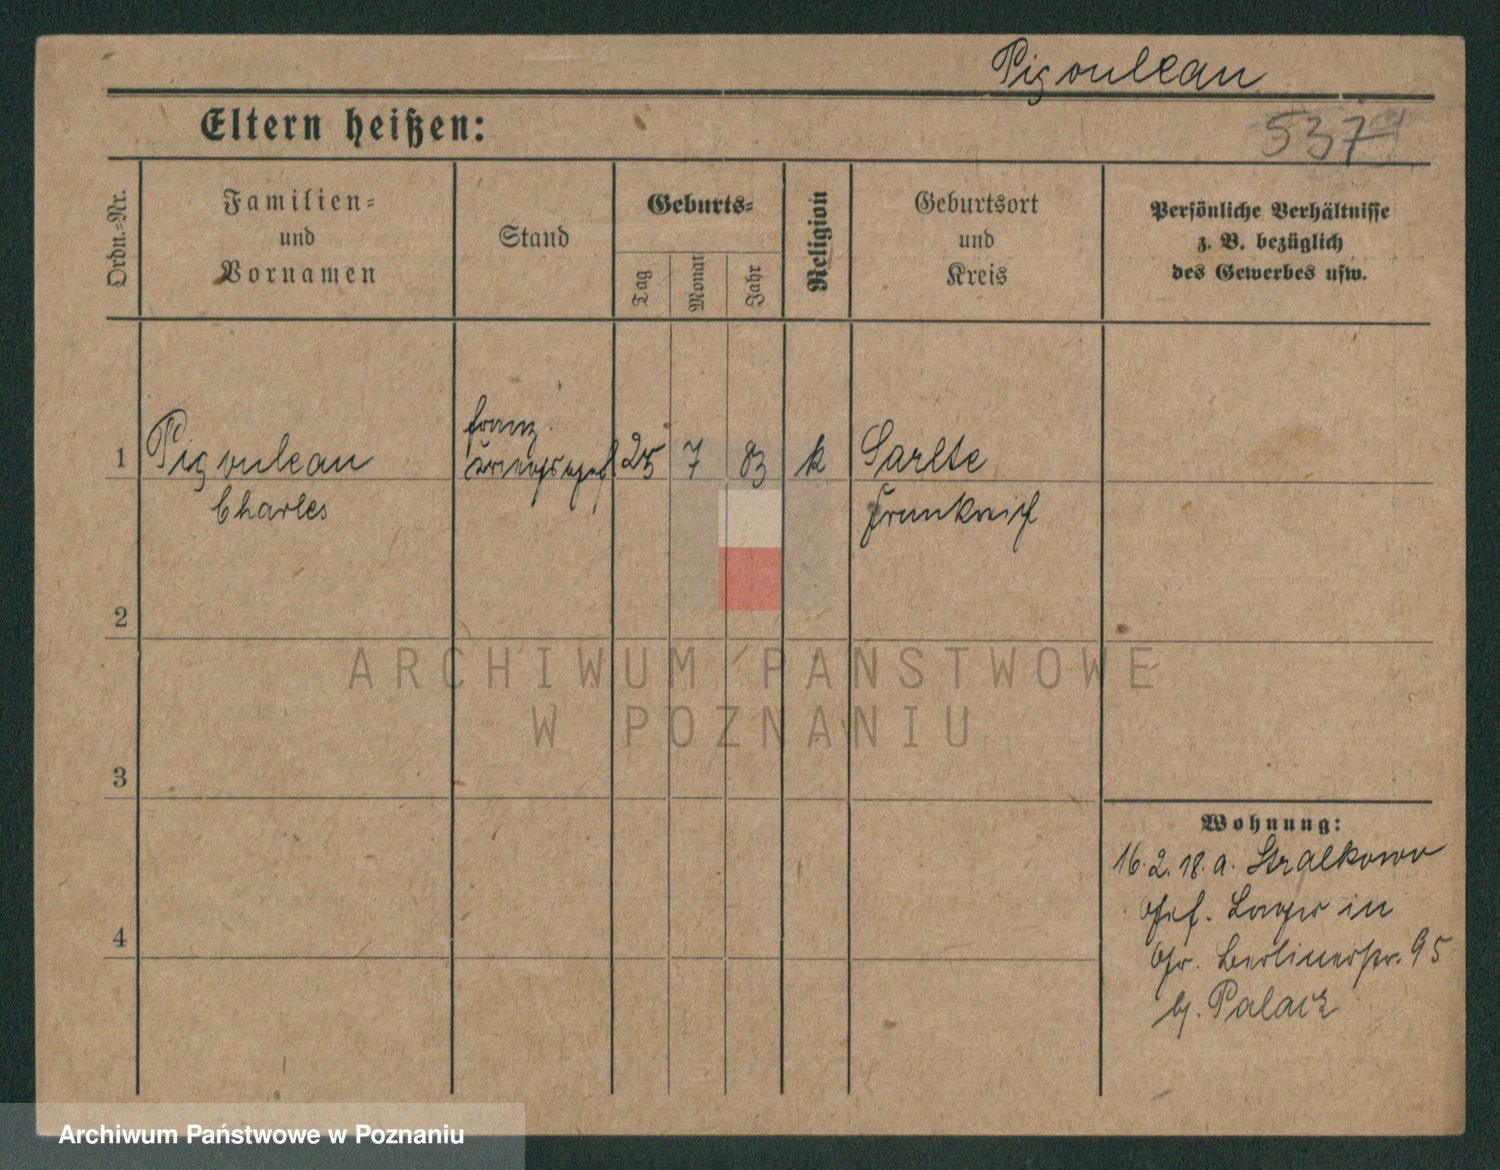 Pigouleau
Eltern heißen:
537
Ordn.-Nr.
Familien-
und
Vornamen
Stand
Geburts-
Tag
Monat
Jahr
Religion
Geburtsort
und
Kreis
Persönliche Verhältnisse
z. B. bezüglich
des Gewerbes usw.
1
Pigouleau
Charles
franz.
Kriegsgef.
25
7
83
k
Sarlte
Frankreich
2
ARCHIWUM PAŃSTWOWE
W POZNANIU
3
4
Wohnung:
16.2.18. a. Stralkowo
Gef. Lager in
Gr. Berlinerstr. 95
b. Palacz
Archiwum Państwowe w Poznaniu